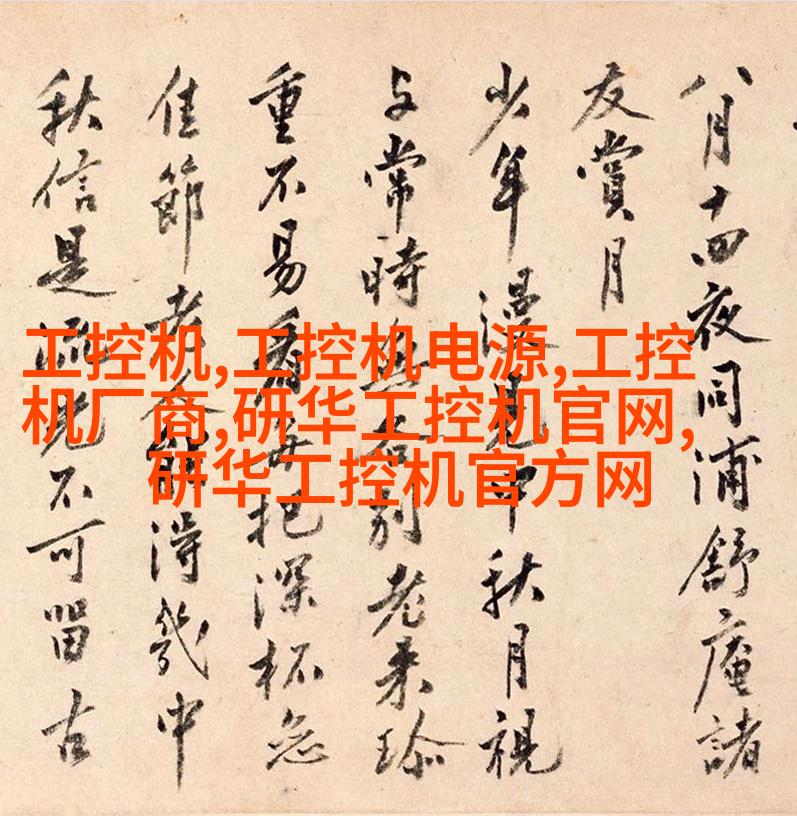 八月十四夜同浦舒庵諸
友賞月
少年漫見中秋月視
与常時無各別老来珎
重不易看每把深杯
佳節老人能得幾中
秋信是流光不可留古
工控机,工控机电源,工控
机厂商,研华工控机官网,
研华工控机官方网